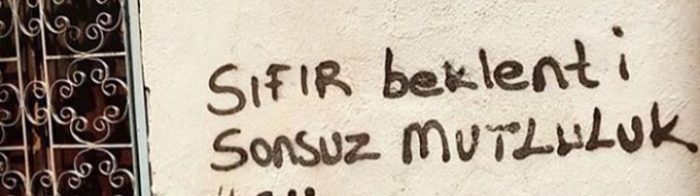 SIFIR beklenti
Sonsuz MUTLuLUK